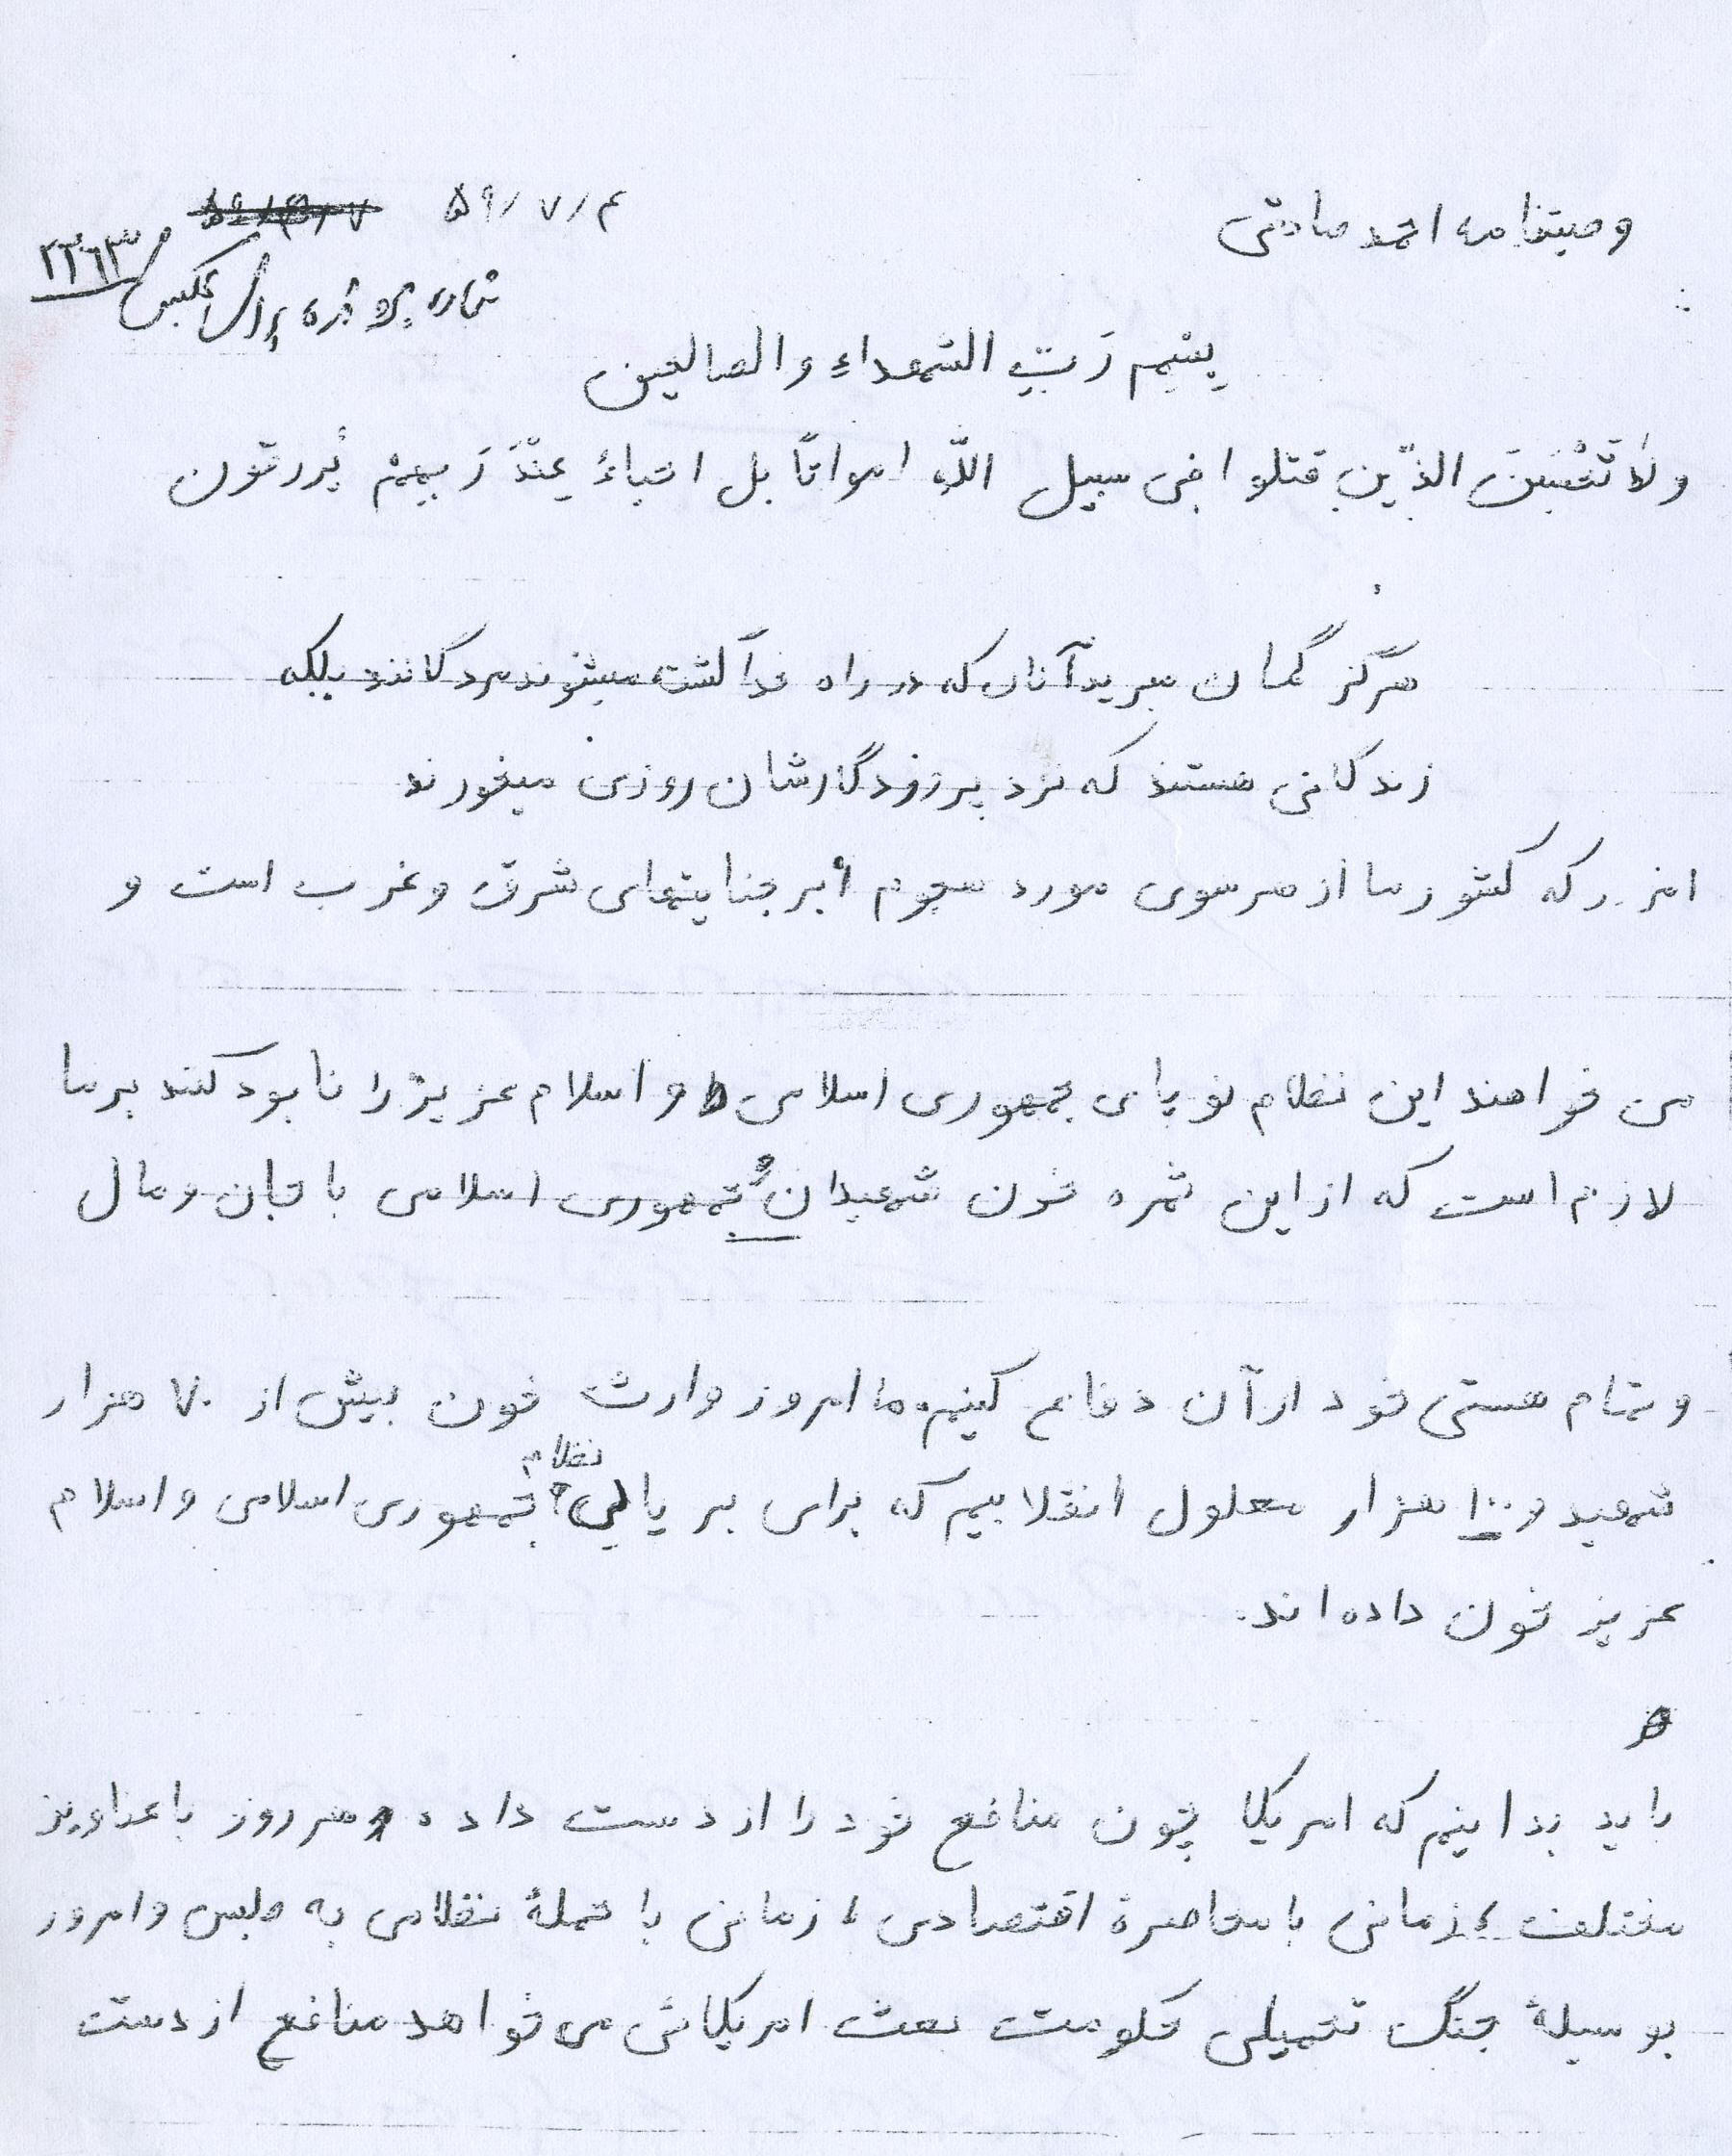 وصیتنامه احمد صادقی
۵۹/۷/۴
شماره پرونده پرسنلی
بِسْمِ رَبِّ الشهداءِ والصالحین
ولا تَحْسَبَنَ الذّین قتلوا فی سبیل اللّه امواتاً بل احیاءُ عِنْدَ رَبهم یُرزقون
هرگز گمان مبرید آنان که در راه خدا کشته میشوند مردگانند بلکه
زندگانی هستند که نزد پروردگارشان روزی میخورند
امروز که کشور ما از هر سوی مورد هجوم ابر جنایتهای شرق و غرب است و
می خواهند این نظام نو پای جمهوری اسلامی و اسلام عزیز را نابود کنند بر ما
لازم است که از این ثمره خون شهیدان و جمهوری اسلامی با جان و مال
و تمام هستی خود از آن دفاع کنیم. ما امروز وارث خون بیش از ۷۰ هزار
شهید و ۱۰۰ هزار معلول انقلابیم که برای بر پایی نظام جمهوری اسلامی و اسلام
عزیز خون داده اند.
باید بدانیم که امریکا چون منافع خود را از دست داده هر روز با عناوین
مختلف، زمانی با محاصرهٔ اقتصادی، زمانی با حملهٔ نظامی به طبس و امروز
بوسیلهٔ جنگ تحمیلی حکومت بعث امریکائی می خواهد منافع از دست